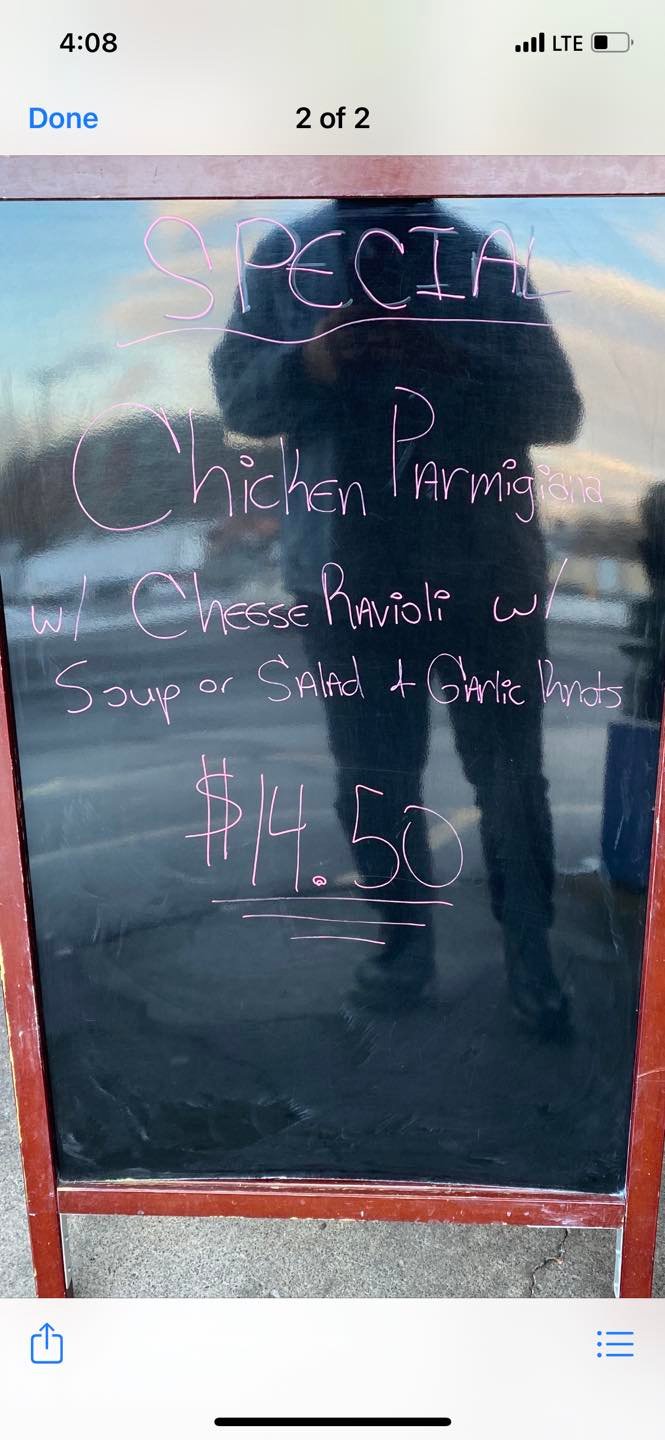 4:08
LTE
Done
2 of 2
SPECIAL
Chicken Parmigiana
w/ Cheese Ravioli w/
Soup or Salad + Garlic Knots
$14.50